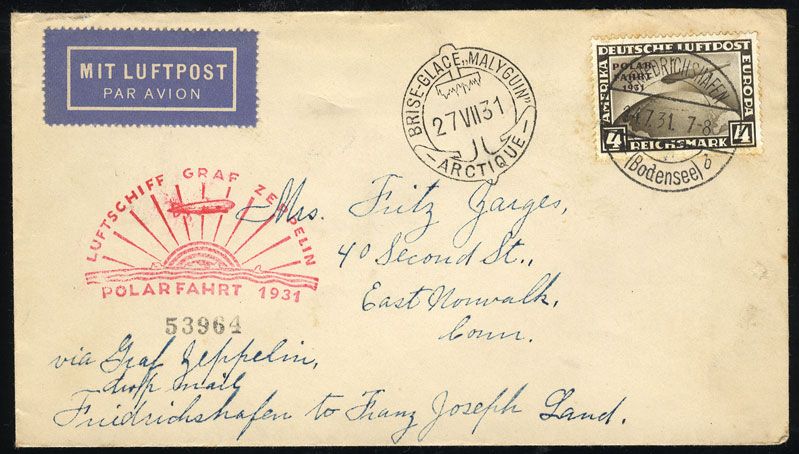 MIT LUFTPOST
PAR AVION
BRISE-GLACE „MALYGUIN”
27 VII 31
ARCTIQUE
DEUTSCHE LUFTPOST
AMERIKA
EUROPA
POLAR
FAHRT
1931
4 REICHSMARK 4
FRIEDRICHSHAFEN
24.7.31. 7-8
(Bodensee) b
LUFTSCHIFF GRAF ZEPPELIN
POLARFAHRT 1931
53964
Mrs. Fritz Garges,
40 Second St.,
East Norwalk,
Conn.
via Graf Zeppelin,
drop mail
Friedrichshafen to Franz Joseph Land.